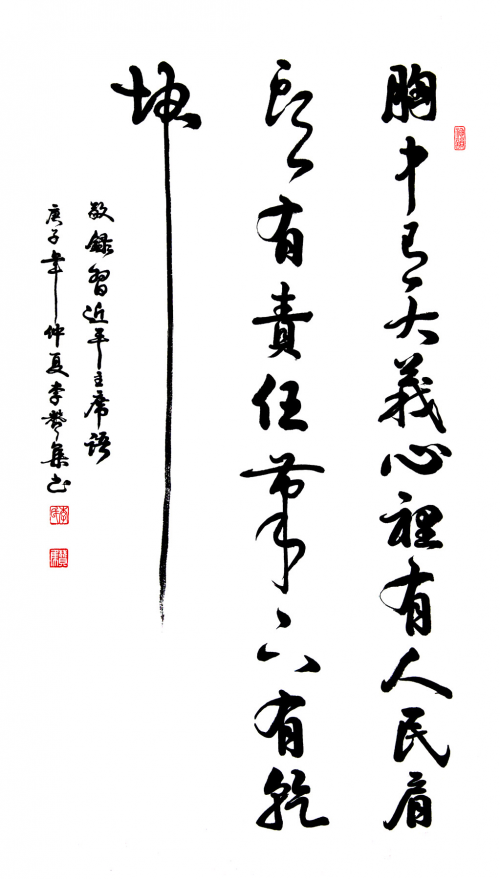 胸中有大義心裡有人民肩
頭有責任筆下有乾
坤
敬錄習近平主席語
庚子年仲夏李贊集書